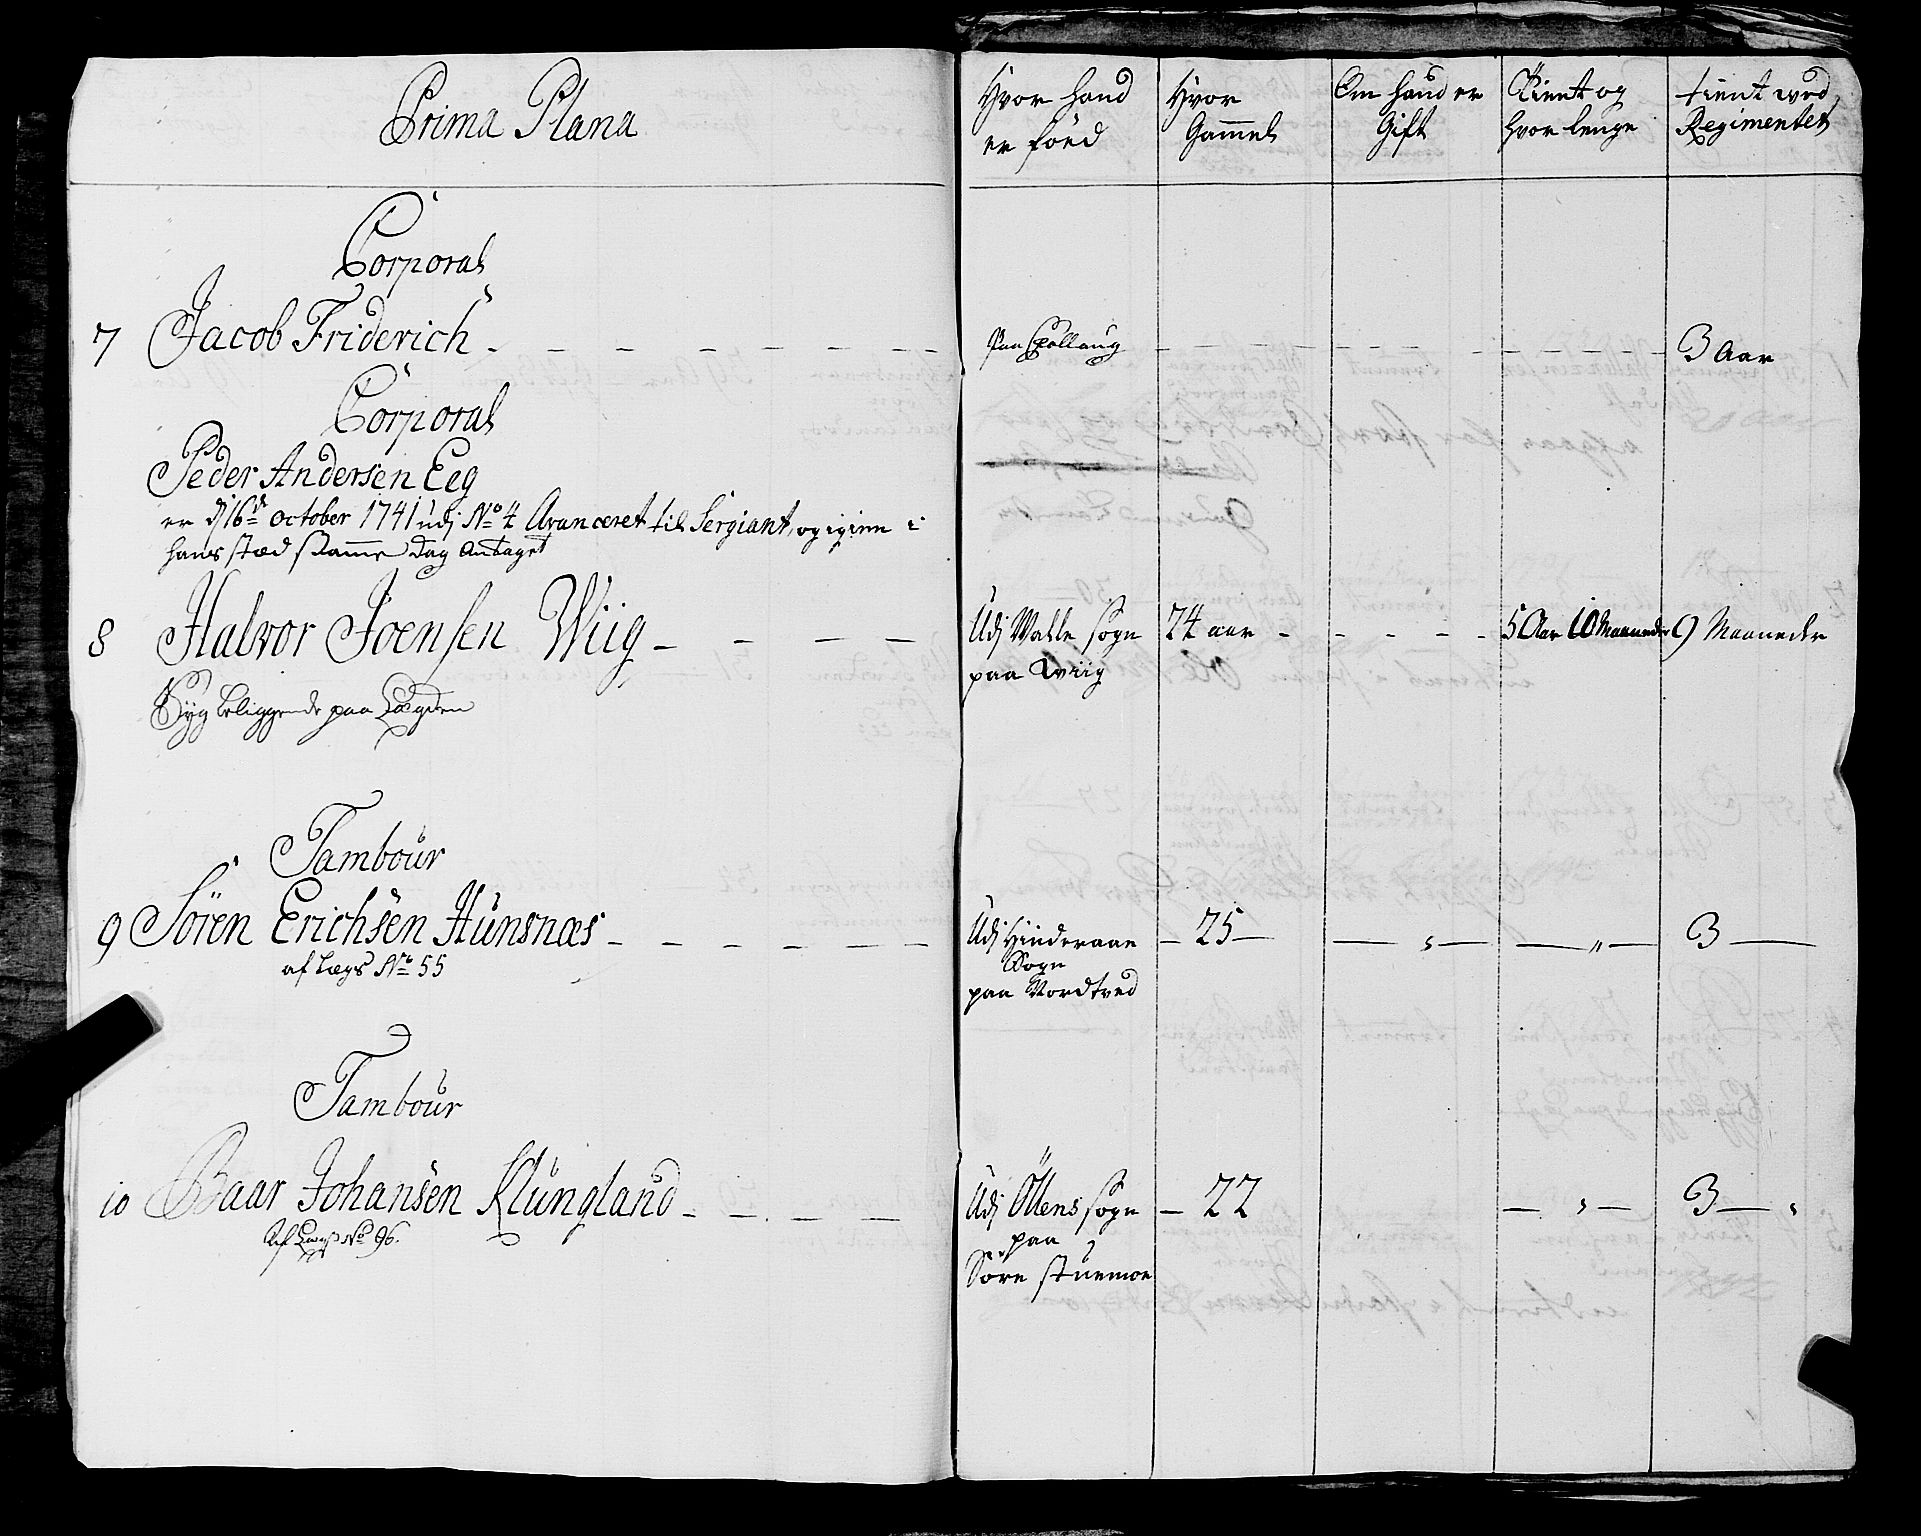 Prima Plana
Hvor hand
er föed
Hvor
Gammel
Om hand er
Gift
Tient og
hvor lenge
tient ved
Regimentet
Corporal
7 Jacob Friderich
3 Aar
Corporal
Peder Andersen Eeg
er d 16de october 1741 udj No 4 Avanceret til Sergiant, og igien i
hans stæd samme dag Antaget
8 Halvor Joensen Wiig
Udj Walle sogn
paa Wiig
24 aar
5 Aar 10 Maaneder
9 Maaneder
Syg beliggende paa Lægden
Tambour
9 Sören Erichsen Hunsnæs
af Lægs No 55
Udj Hinderaae
Sogn
paa Nordtved
25
3
Tambour
10 Baar Johansen Klungland
Af Lægs No 96.
Udj Öllens sogn
paa
Söre stuemoe
22
3